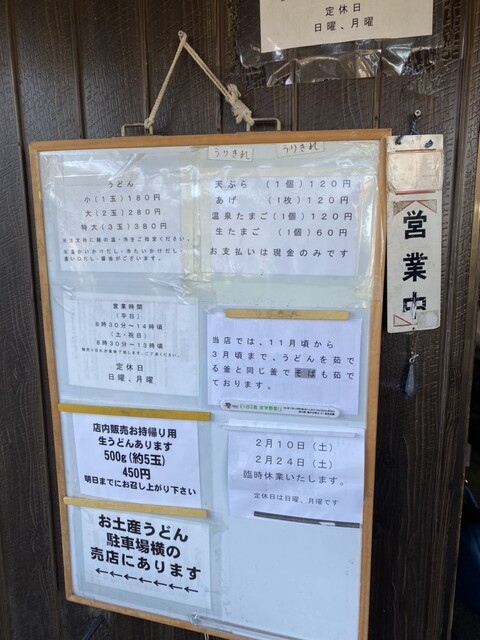 定休日
日曜、月曜
うりきれ
うりきれ
うどん
小(1玉)180円
大(2玉)280円
特大(3玉)380円
天ぷら (1個)120円
あげ (1枚)120円
温泉たまご(1個)120円
生たまご (1個)60円
お支払いは現金のみです
営業中
営業時間
(平日)
8時30分〜14時頃
(土・祝日)
8時30分〜13時頃
定休日
日曜、月曜
当店では、11月頃から
3月頃まで、うどんを茹で
る釜と同じ釜でそばも茹で
ております。
店内販売お持帰り用
生うどんあります
500g(約5玉)
450円
明日までにお召し上がり下さい
2月10日(土)
2月24日(土)
臨時休業いたします。
定休日は日曜、月曜です
お土産うどん
駐車場横の
売店にあります
←←←←←←←